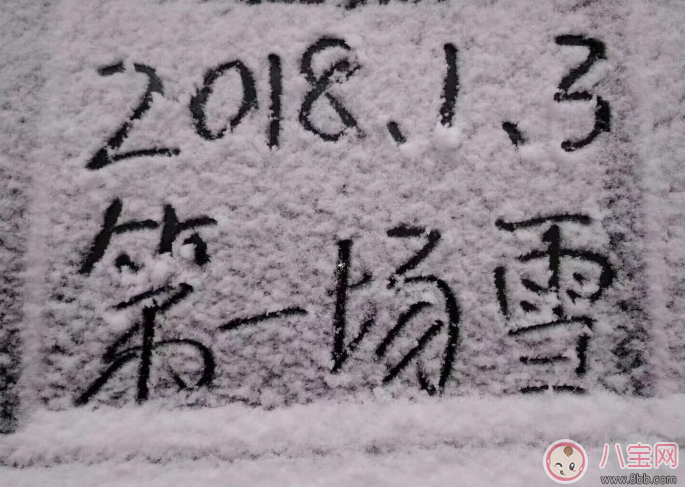 2018.1.3
第一场雪
八宝网
www.8bb.com